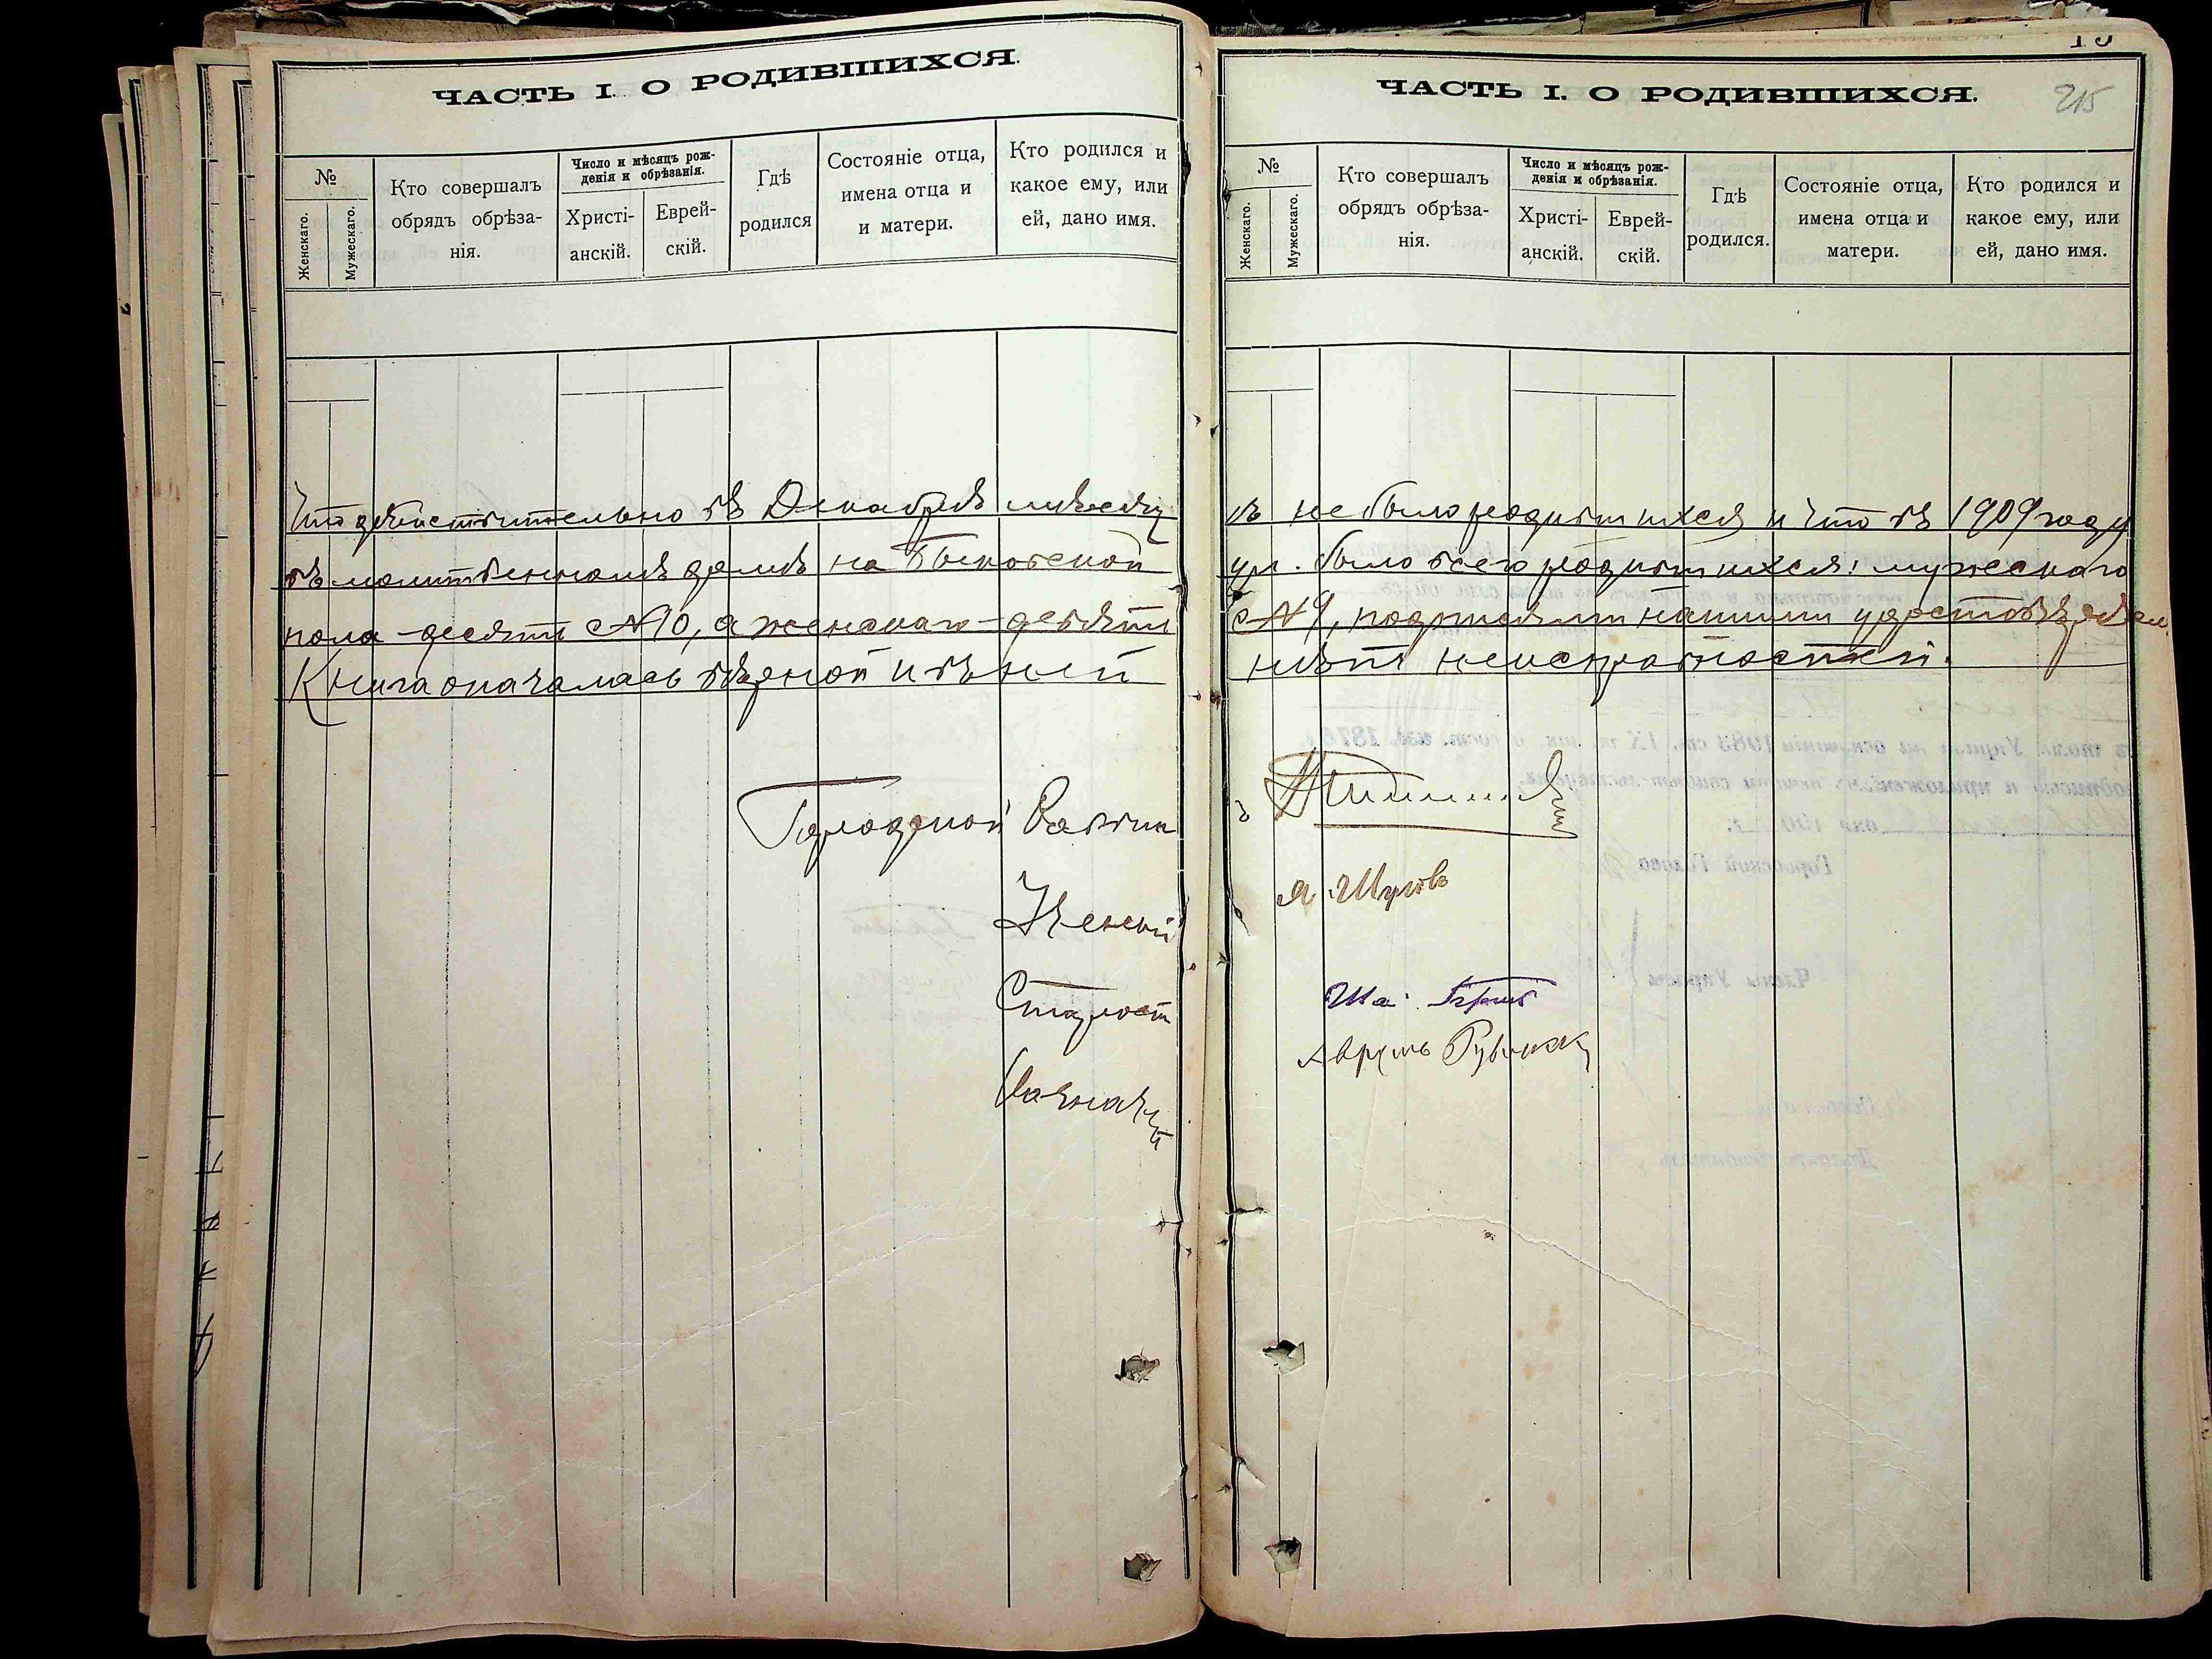 ЧАСТЬ I. О РОДИВШИХСЯ.
№
Женскаго.
Мужескаго.
Кто совершалъ
обрядъ обрѣза-
нія.
Число и мѣсяцъ рож-
денія и обрѣзанія.
Христі-
анскій.
Еврей-
скій.
Гдѣ
родился
Состояніе отца,
имена отца и
и матери.
Кто родился и
какое ему, или
ей, дано имя.
Что дѣйствительно въ Декабрѣ мѣсяц
въ молитвенномъ домѣ на Быковской
пола – десять №10, а женскаго – девять
Книга окачалась вѣрной и въ ней
Городской Раввин
Ученый
Старост
Казначей
ЧАСТЬ I. О РОДИВШИХСЯ.
215
№
Женскаго.
Мужескаго.
Кто совершалъ
обрядъ обрѣза-
нія.
Число и мѣсяцъ рож-
денія и обрѣзанія.
Христі-
анскій.
Еврей-
скій.
Гдѣ
родился.
Состояніе отца,
имена отца и
матери.
Кто родился и
какое ему, или
ей, дано имя.
ѣ не было родившихся и что въ 1909 году
ул. было всего родившихся: мужескаго
№ 9, подписями нашими удостовѣряем.
нѣтъ неисправностей.